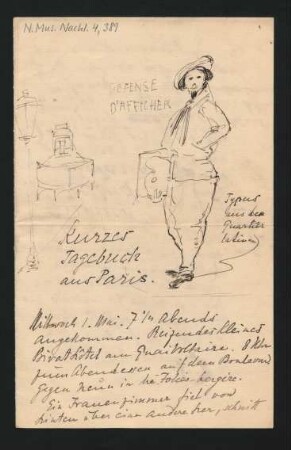 N. Mus. Nachl. 4, 389
DEFENSE
D'AFFICHER
Typus
aus dem
Quartier
latin
Kurzes
Tagebuch
aus Paris.
Mittwoch 1. Mai. 7 Abends
angekommen. Reizendes kleines
Privathôtel am Quai Voltaire. 8 Uhr
zum Abendessen auf dem Boulevard
Gegen neun in die Folies-bergère.
Ein Frauenzimmer fiel von
hinten über eine andre her, schnitt